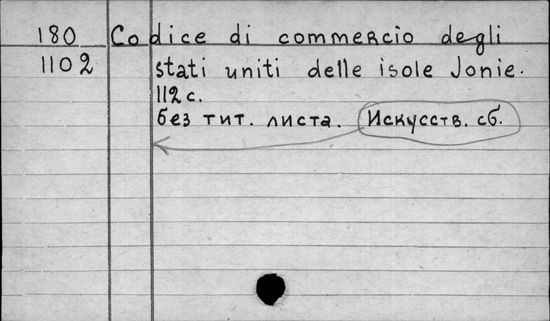 180 Codice di commercio degli
1102 stati uniti delle isole Jonie.
112 с.
без тит. листа. Искусств. сб.